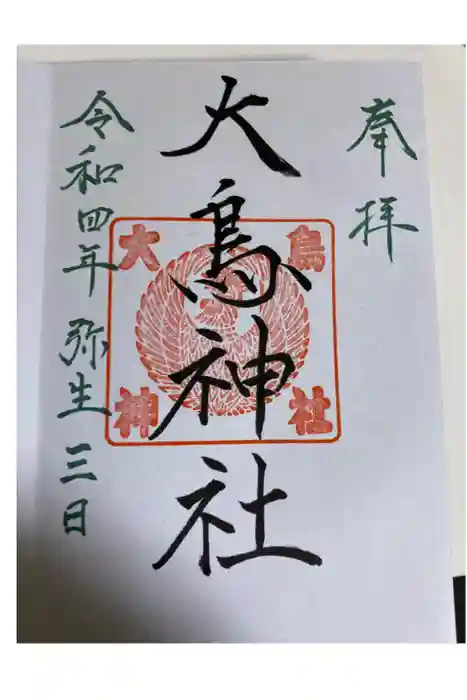 奉拝
大鳥神社
大鳥
神社
令和四年弥生三日